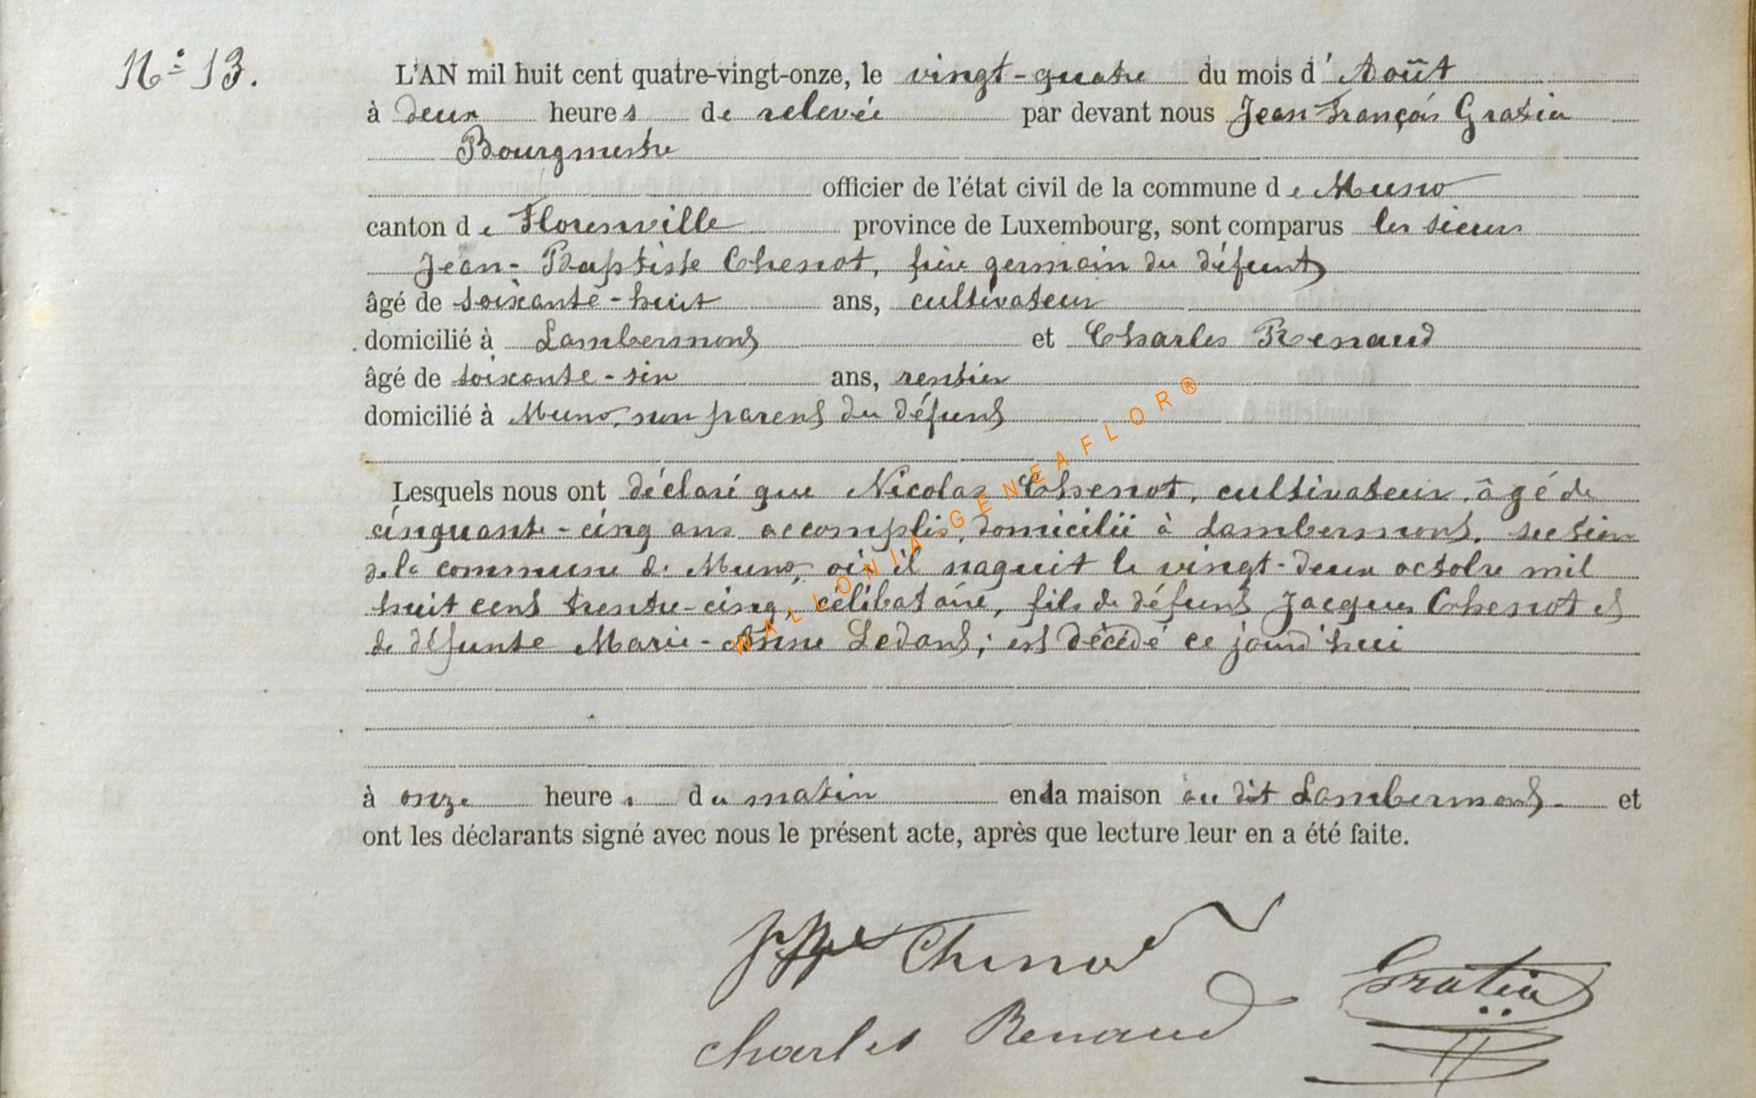 N° 13.
L'AN mil huit cent quatre-vingt-onze, le vingt-quatre du mois d'Août
à deux heures de relevée par devant nous Jean François Gratia
Bourgmestre
officier de l'état civil de la commune de Muno
canton de Florenville province de Luxembourg, sont comparus les sieurs
Jean-Baptiste Chenot, frère germain du défunt,
âgé de soixante-huit ans, cultivateur
domicilié à Lambermont et Charles Renaud
âgé de soixante-six ans, rentier
domicilié à Muno, non parent du défunt
Lesquels nous ont déclaré que Nicolas Chenot, cultivateur, âgé de
cinquante-cinq ans accomplis, domicilié à Lambermont, section
de la commune de Muno, où il naquit le vingt-deux octobre mil
huit cent trente-cinq, célibataire, fils de défunt Jacques Chenot et
de défunte Marie-Anne Ledant; est décédé ce jourd'hui
à onze heures du matin en la maison au dit Lambermont. et
ont les déclarants signé avec nous le présent acte, après que lecture leur en a été faite.
Chenot
Gratia
Charles Renaud
WALLONIA-GENEAFLOR®